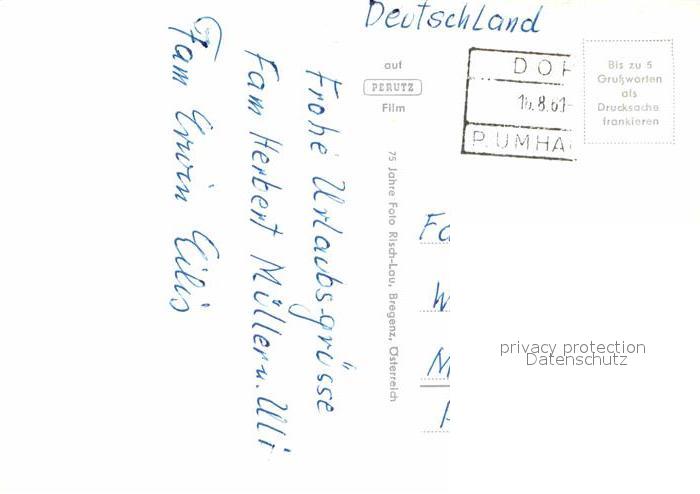 Deutschland
Frohe Urlaubsgrüsse
Fam Herbert Müller u. Uli
Fam Erwin
auf
PERUTZ
Film
75 Jahre Foto Risch-Lau, Bregenz, Österreich
DO
8.61
P.UMHA
Bis zu 5
Grußworten
als
Drucksache
frankieren
Fa
W
M
privacy protection
Datenschutz